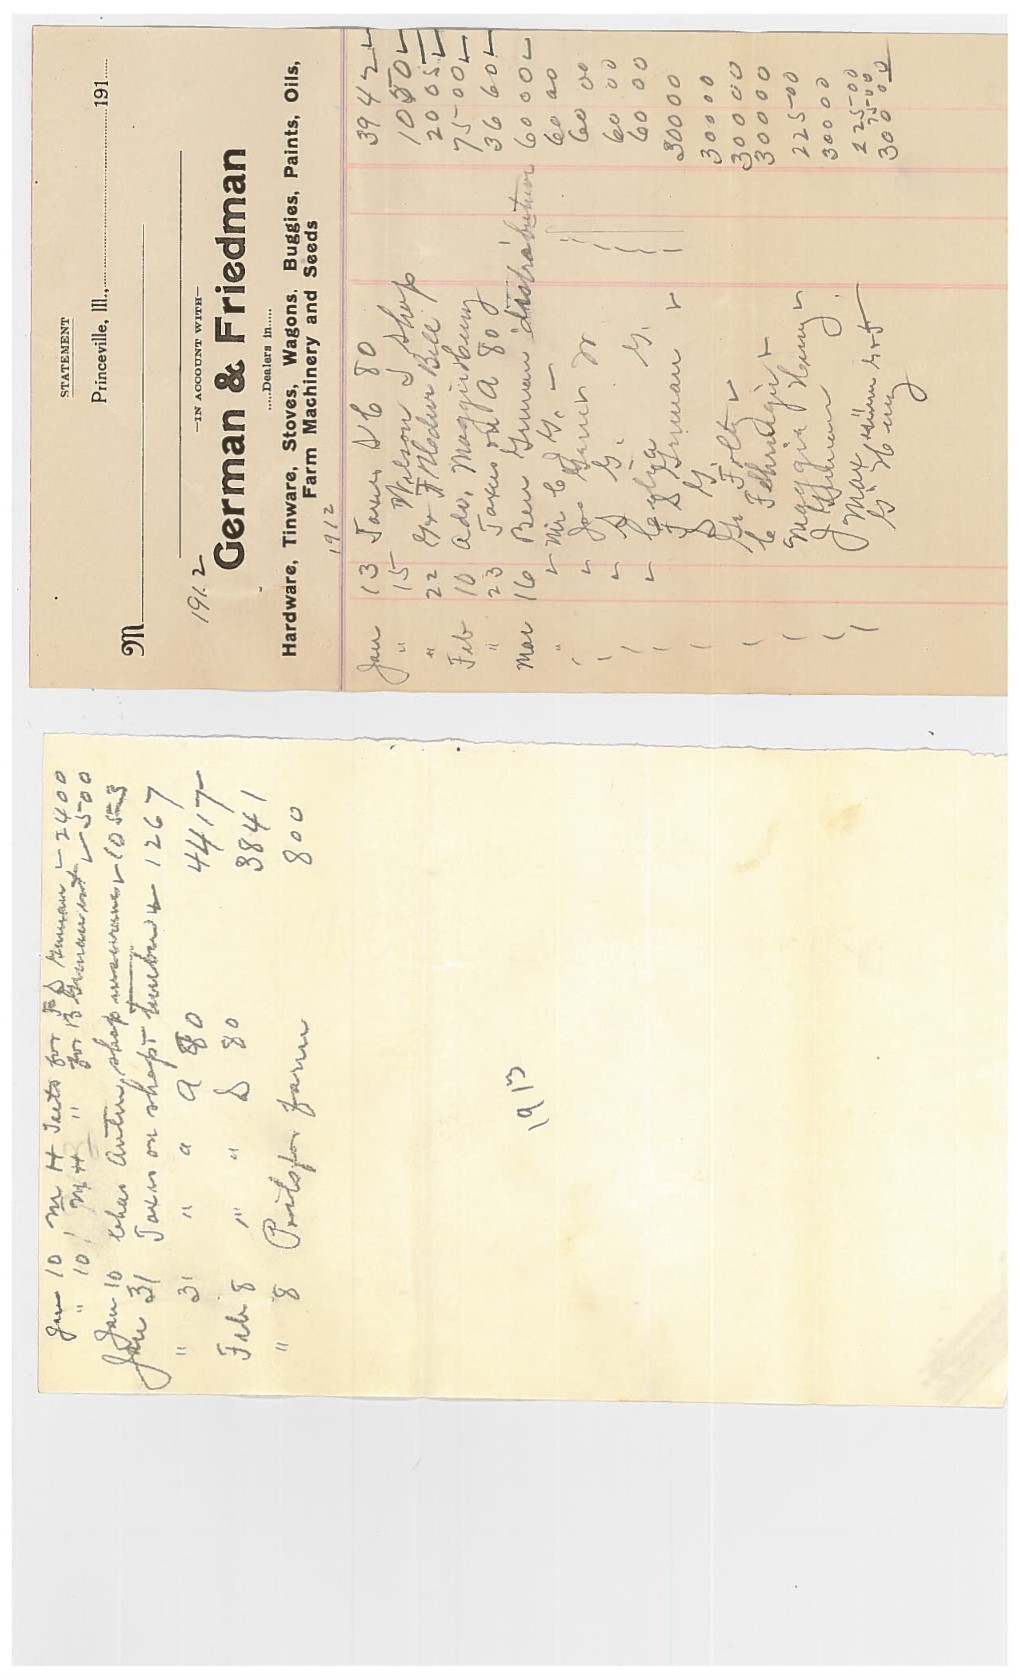 Jan 10 M H Teets for F S German 2400
" 10 M H " for B German 500
Jan 10 Chas shop insurance 1053
Jan 31 Taxes on shop + timber 1267
" 31 " " A 80 4417
Feb 8 " " S 80 3841
" 8 for farm 800
1913
STATEMENT
Princeville, Ill., 191
M
1912
—IN ACCOUNT WITH—
German & Friedman
.....Dealers in.....
Hardware, Tinware, Stoves, Wagons, Buggies, Paints, Oils,
Farm Machinery and Seeds
1912
Jan 13 Taxes S C 80 39 42
" 15 Wilson Shop 10 50
" 22 G + F Bill 20 05
Feb 10 Adv. Maggie Henry 75 00
" 23 Taxes on A 80 36 60
Mar 16 Ben German distributive 60 00
" Mr C J G. 60 00
Joe Jr 60 00
S G. 60 00
Celia G. 60 00
F S German 300 00
S G. 300 00
Foltz 300 00
C Fehringer 300 00
Maggie Henry 225 00
J German 300 00
Max " 225 00
G + F 75 00
G Henry 300 00